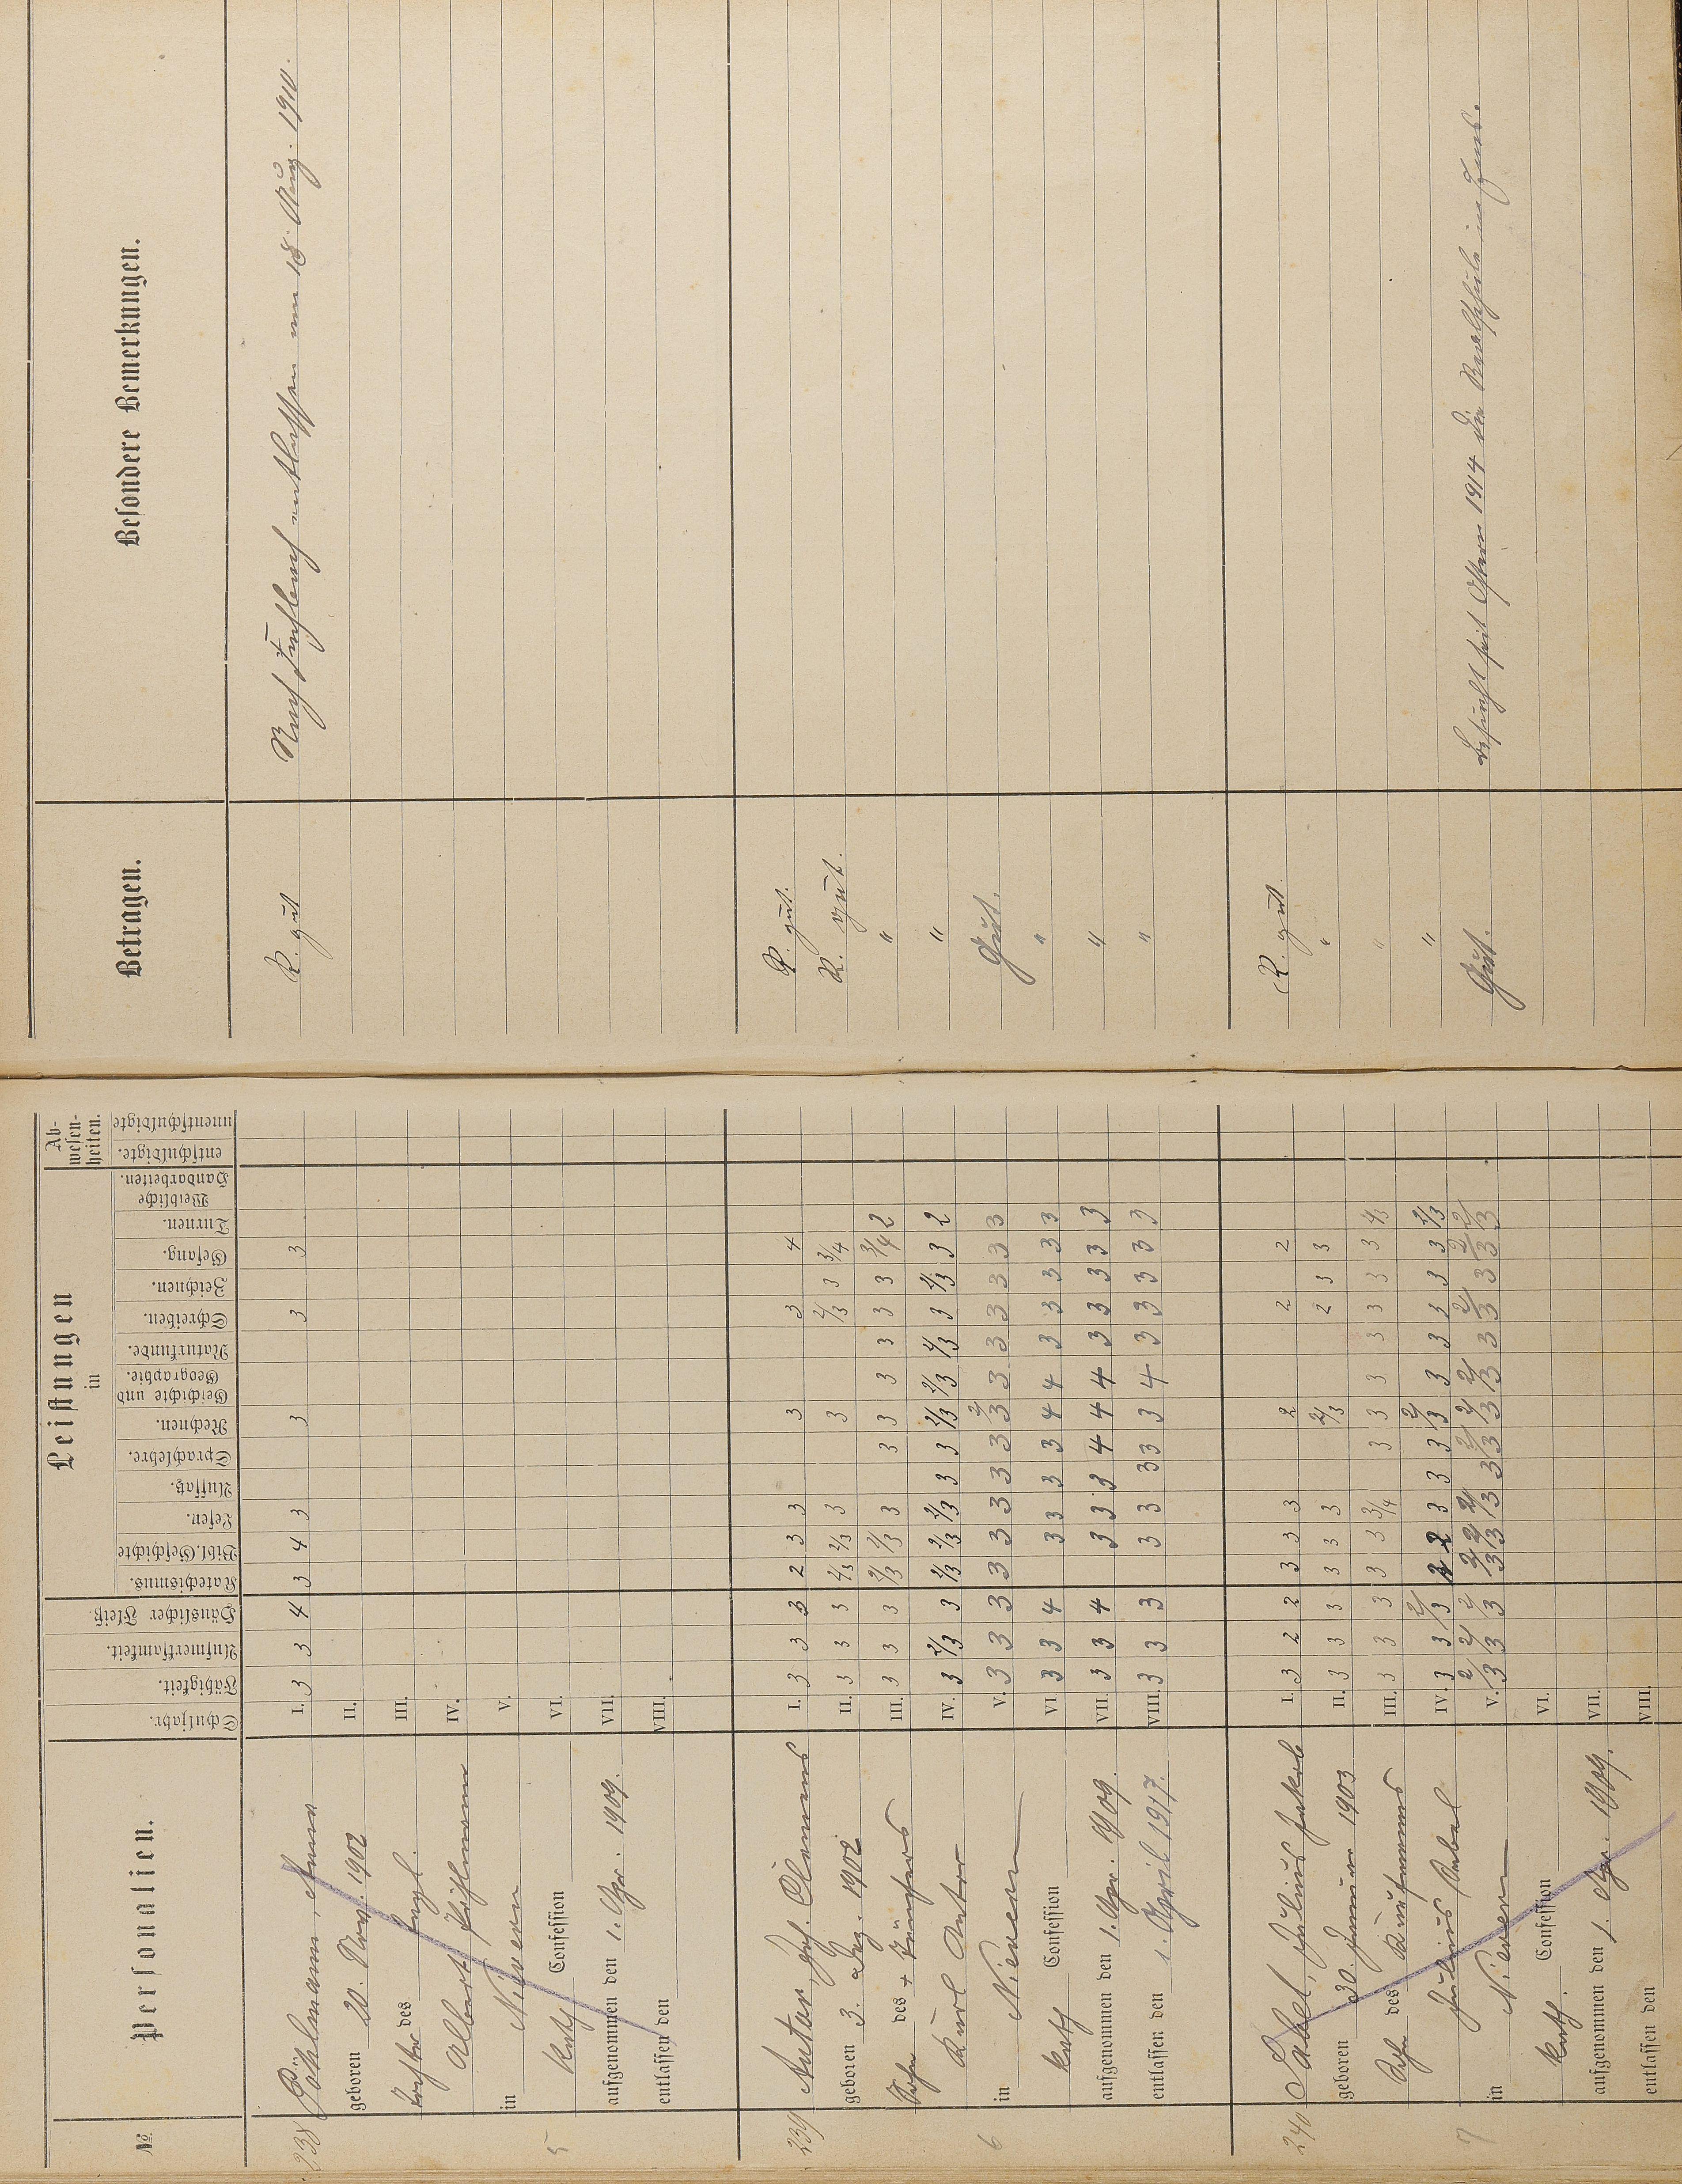 Personalien.
Leistungen
in
Ab-
wesen-
heiten.
Betragen.
Besondere Bemerkungen.
№
Schuljahr.
Fähigkeit.
Aufmerksamkeit.
Häuslicher Fleiß.
Katechismus.
Bibl. Geschichte
Lesen.
Aufsatz.
Sprachlehre.
Rechnen.
Geschichte und
Geographie.
Naturkunde.
Schreiben.
Zeichnen.
Gesang.
Turnen.
Weibliche
Handarbeiten.
entschuldigte.
unentschuldigte
238 Pöhlmann, Anna
geboren 20. Nov. 1902
Tochter des
Albert Pöhlmann
in Nievern
5 kath Confession
aufgenommen den 1. Apr. 1909.
entlassen den
I. 3 3 4 3 4 3 3 3 3
II.
III.
IV.
V.
VI.
VII.
VIII.
R. gut
Nach entlassen am 18. Aug. 1910.
239 Autor, Jos. Clemens
geboren 3. Dez. 1902
Sohn des +
Karl Autor
in Nievern
6 kath Confession
aufgenommen den 1. Apr. 1909.
entlassen den 1. April 1917.
I. 3 3 3 2 3 3 3 3 4
II. 3 3 3 2/3 2/3 3 3 2/3 3 3/4
III. 3 3 3 2/3 2/3 3 3 3 3 3 3 3 3/4 2
IV. 3 2/3 3 2/3 2/3 2/3 3 3 2/3 2/3 2/3 3 2/3 3 2
V. 3 3 3 3 3 3 3 3 2/3 3 3 3 3 3 3
VI. 3 3 4 3 3 3 3 4 4 3 3 3 3 3
VII. 3 3 4 3 3 3 4 4 4 3 3 3 3 3
VIII. 3 3 3 3 3 3 3 3 4 3 3 3 3 3
R. gut.
R. gut.
"
"
Gut.
"
"
"
240 Sabel, Julius Jakob
geboren 30. Januar 1903
Sohn des Kaufmanns
Julius Sabel
in Nievern
7 kath. Confession
aufgenommen den 1. Apr. 1909.
entlassen den
I. 3 2 2 3 3 3 2 2 2
II. 3 3 3 3 3 3 2/3 2 3 3
III. 3 3 3 3 3 3/4 3 3 3 3 3 3 3 2/3
IV. 3 3 2/3 2 2 3 3 3 2/3 3 3 3 3 3 2/3
V. 2/3 2/3 2/3 2/3 2/3 2/3 3 2/3 2/3 2/3 3 2/3 3 2/3 2/3
VI.
VII.
VIII.
R. gut.
"
"
"
Gut.
Besucht seit Ostern 1914 die Realschule in Ems.